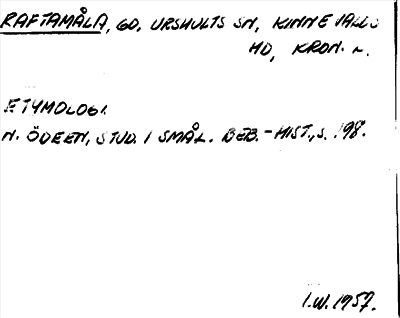 RAFTAMÅLA, GD, URSHULTS SN, KINNEVALLS
HD, KRON. L.
ETYMOLOGI.
N. ÖDEEN, STUD. I SMÅL. BEB.-HIST., S. 198.
I.W. 1957.